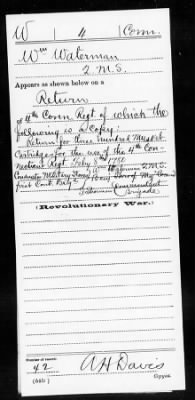 W 4 Conn.
Wm Waterman
Q.M.S.
Appears as shown below on a
Return
of 4th Conn. Regt. of which the
following is a Copy:
Return for three hundred Musket
Cartridges for the use of the 4th Con-
necticut Regt Feby 8th 1780
Wm Waterman Q.M.S.
Conductor Military Stores
first Connt
Connecticut
Brigade
(Revolutionary War.)
Number of record:
42
A H Davis
(545) Copyist.